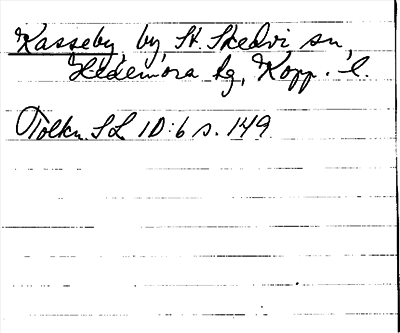 Kasseby, by, St. Skedvi sn,
Hedemora tg, Kopp. l.
Tolkn. SL 10:6 s. 149